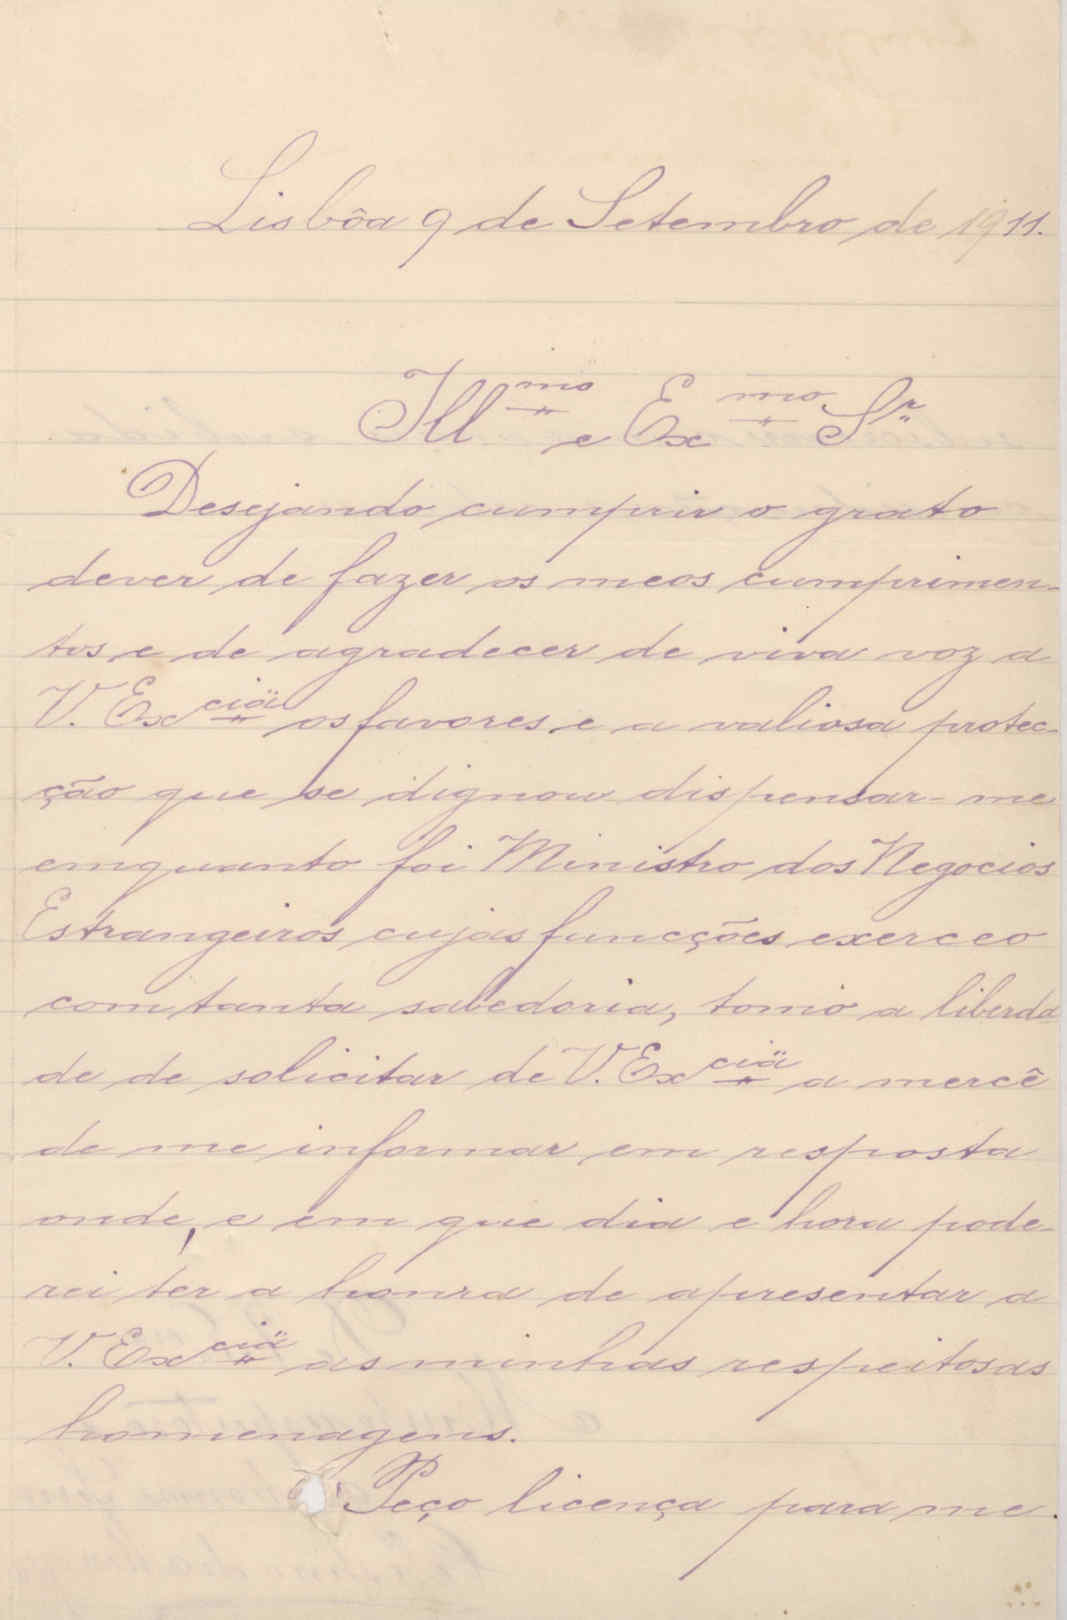 Lisbôa 9 de Setembro de 1911.
Ill.mo e Ex.mo Sr.
Desejando cumprir o grato
dever de fazer os meos cumprimen-
tos e de agradecer de viva voz a
V. Ex.cia os favores e a valiosa protec-
ção que se dignou dispensar-me
emquanto foi Ministro dos Negocios
Estrangeiros cujas funcções exerceo
com tanta sabedoria, tomo a liberda
de de solicitar de V. Ex.cia a mercê
de me informar em resposta
onde, e em que dia e hora pode-
rei ter a honra de apresentar a
V. Ex.cia as minhas respeitosas
homenagens.
Peço licença para me